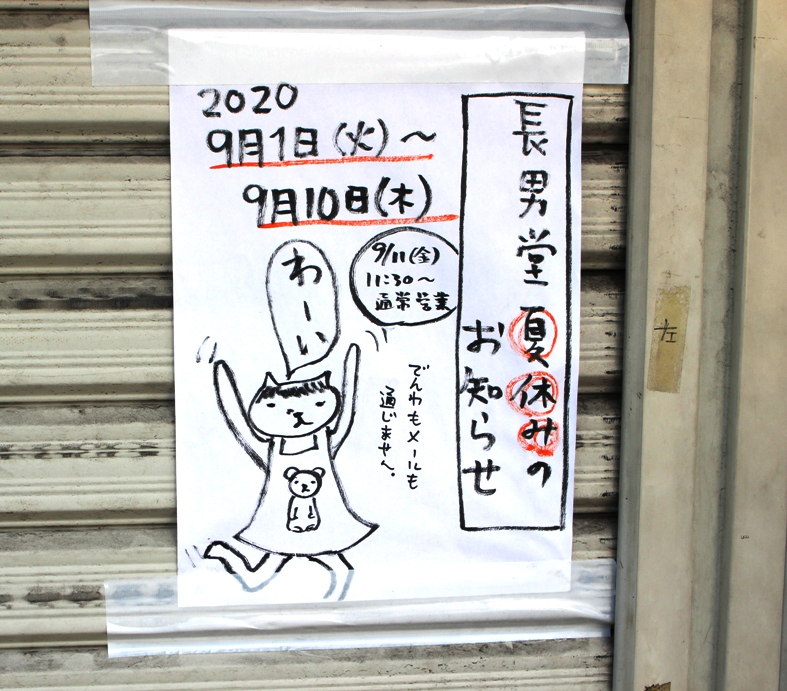 長男堂 夏休みの
お知らせ
2020
9月1日(火)〜
9月10日(木)
9/11(金)
11:30〜
通常営業
わーい
でんわもメールも
通じません。
左